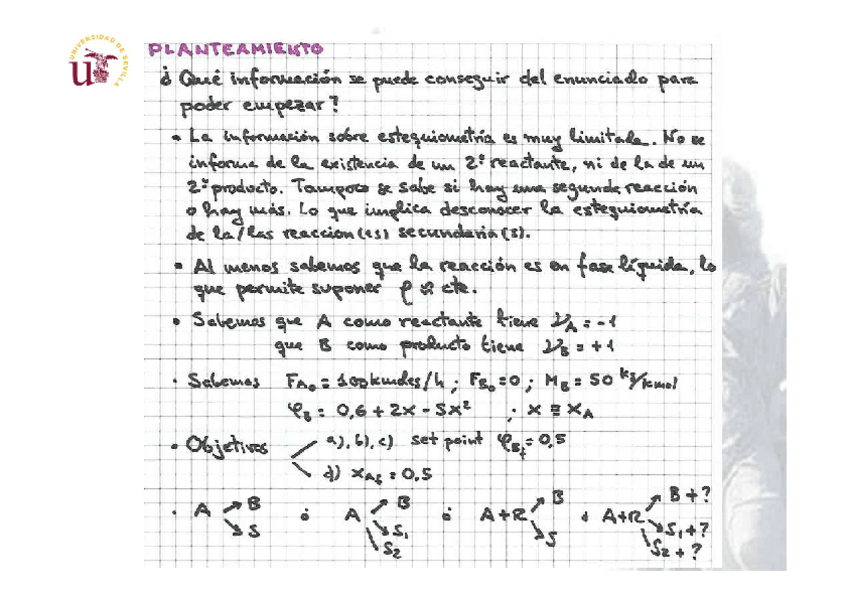 UNIVERSIDAD DE SEVILLA
PLANTEAMIENTO
¿Qué información se puede conseguir del enunciado para
poder empezar?
• La información sobre estequiometría es muy limitada. No se
informa de la existencia de un 2º reactante, ni de la de un
2º producto. Tampoco se sabe si hay una segunda reacción
o hay más. Lo que implica desconocer la estequiometría
de la/las reaccion(es) secundaria(s).
• Al menos sabemos que la reacción es en fase líquida, lo
que permite suponer ρ ≈ cte.
• Sabemos que A como reactante tiene ν_A = -1
que B como producto tiene ν_B = +1
• Sabemos F_Ao = 100 kmoles/h ; F_Bo = 0 ; M_B = 50 kg/kmol
φ_B = 0,6 + 2x - 5x² ; x ≡ x_A
• Objetivos a), b), c) set point φ_Bf = 0,5
d) x_Af = 0,5
• A → B S ó A → B S₁ S₂ ó A+R → B S ó A+R → B+? S₁+? S₂+?